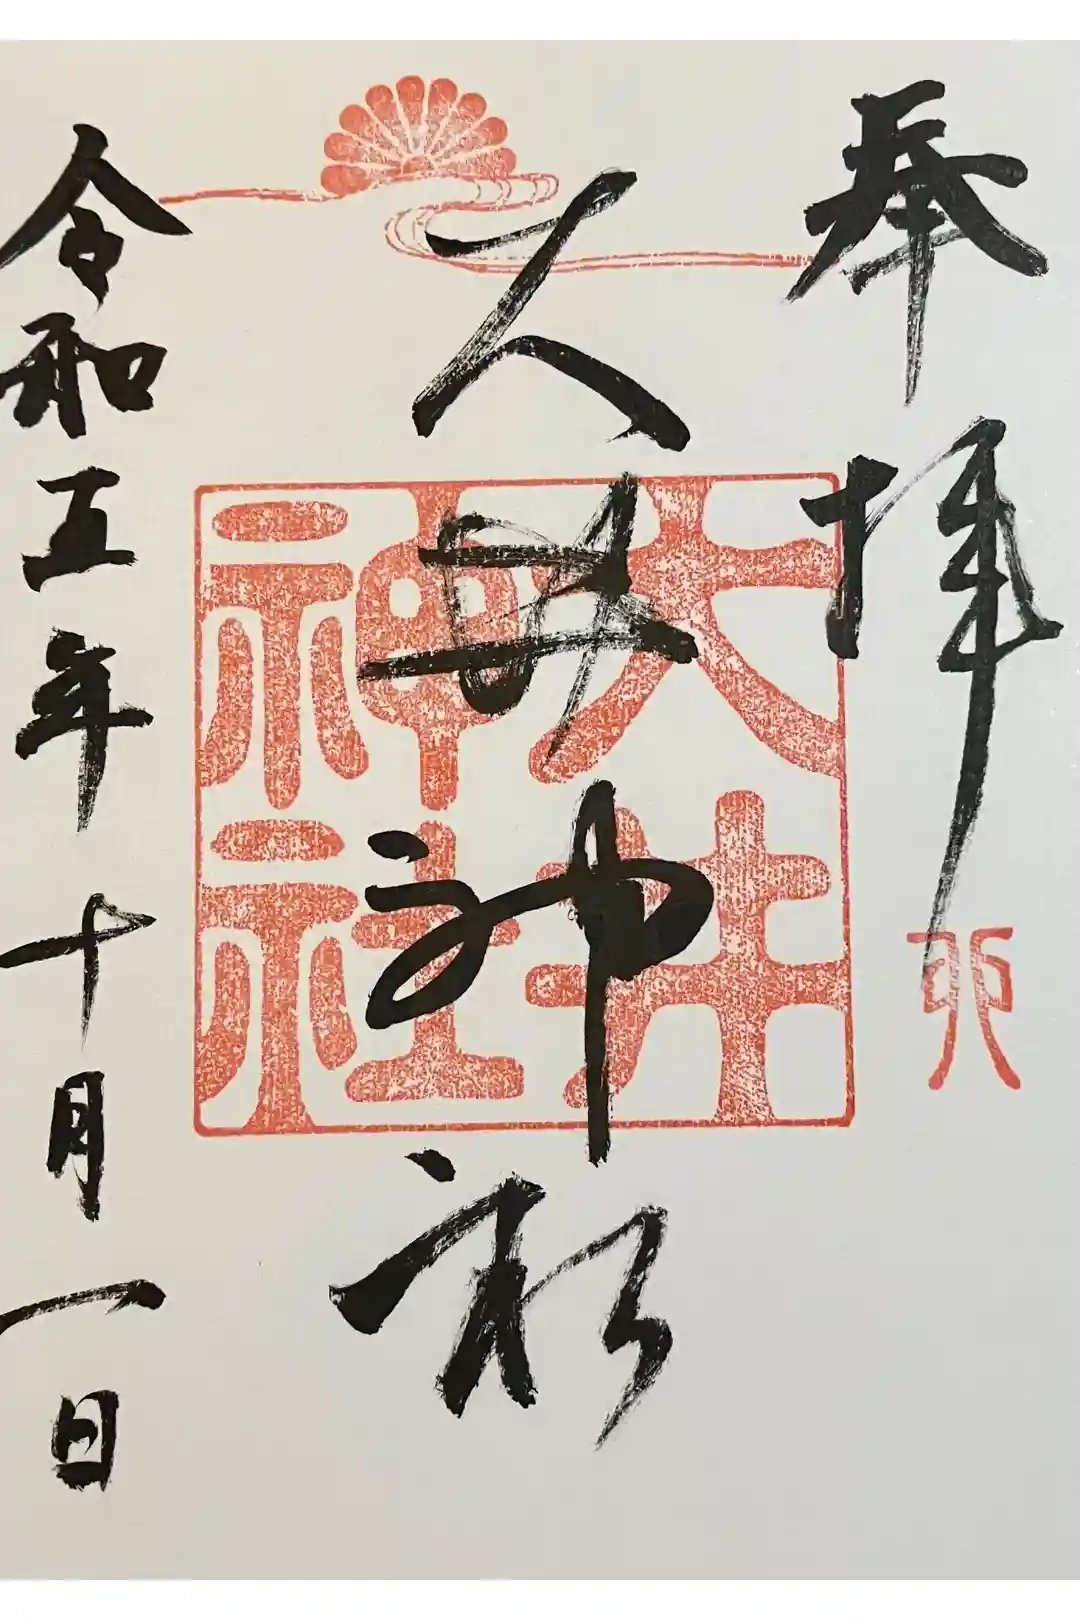 奉拝
大井神社
大井
神社
令和五年十月一日